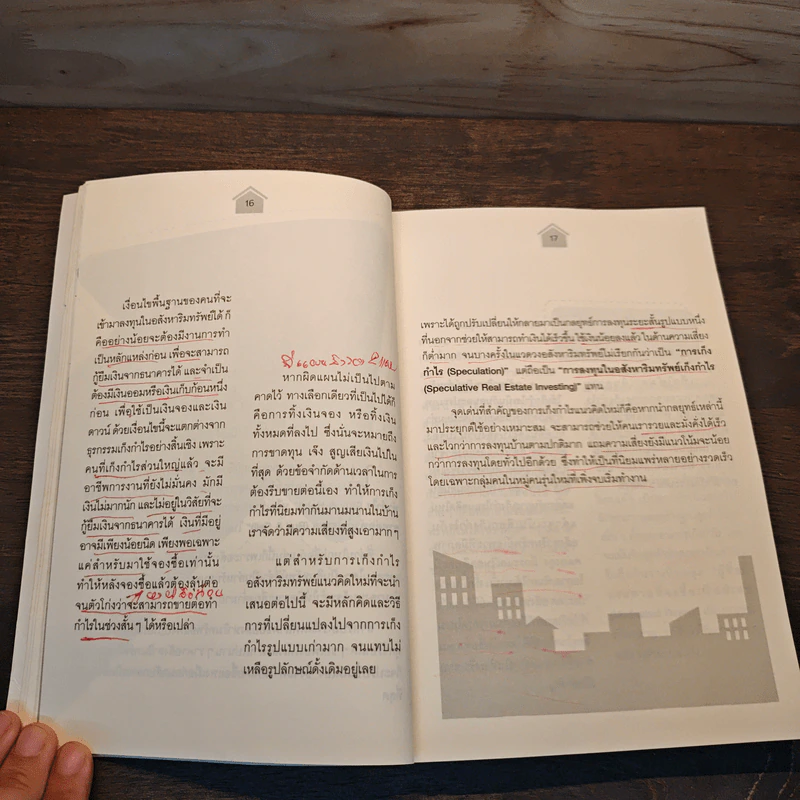 16
เงื่อนไขพื้นฐานของคนที่จะ
เข้ามาลงทุนในอสังหาริมทรัพย์ได้ ก็
คืออย่างน้อยจะต้องมีงานการทำ
เป็นหลักแหล่งก่อน เพื่อจะสามารถ
กู้ยืมเงินจากธนาคารได้ และจำเป็น
ต้องมีเงินออมหรือเงินเก็บก่อนหนึ่ง
ก่อน เพื่อใช้เป็นเงินจองและเงิน
ดาวน์ ด้วยเงื่อนไขนี้จะแตกต่างจาก
ธุรกรรมเก็งกำไรอย่างสิ้นเชิง เพราะ
คนที่เก็งกำไรส่วนใหญ่แล้ว จะมี
อาชีพการงานที่ยังไม่มั่นคง มักมี
เงินไม่มากนัก และไม่อยู่ในวิสัยที่จะ
กู้ยืมเงินจากธนาคารได้ เงินที่มีอยู่
อาจมีเพียงน้อยนิด เพียงพอเฉพาะ
แค่สำหรับมาใช้จองซื้อเท่านั้น
ทำให้หลังจองซื้อแล้วต้องลุ้นต่อ
จนตัวโก่งว่าจะสามารถขายต่อทำ
กำไรในช่วงสั้นๆ ได้หรือเปล่า
หากผิดแผนไม่เป็นไปตาม
คาดไว้ ทางเลือกเดียวที่เป็นไปได้ก็
คือการทิ้งเงินจอง หรือทิ้งเงิน
ทั้งหมดที่ลงไป ซึ่งนั่นจะหมายถึง
การขาดทุน เจ๊ง สูญเสียเงินไปใน
ที่สุด ด้วยข้อจำกัดด้านเวลาในการ
ต้องรีบขายต่อนี้เอง ทำให้การเก็ง
กำไรที่นิยมทำกันมานมนานในบ้าน
เราจัดว่ามีความเสี่ยงที่สูงเอามากๆ
แต่สำหรับการเก็งกำไร
อสังหาริมทรัพย์แนวคิดใหม่ที่จะนำ
เสนอต่อไปนี้ จะมีหลักคิดและวิธี
การที่เปลี่ยนแปลงไปจากการเก็ง
กำไรรูปแบบเก่ามาก จนแทบไม่
เหลือรูปลักษณ์ดั้งเดิมอยู่เลย
17
เพราะได้ถูกปรับเปลี่ยนให้กลายมาเป็นกลยุทธ์การลงทุนระยะสั้นรูปแบบหนึ่ง
ที่นอกจากช่วยให้สามารถทำเงินได้เร็วขึ้น ใช้เงินน้อยลงแล้ว ในด้านความเสี่ยง
ก็ต่ำมาก จนบางครั้งในแวดวงอสังหาริมทรัพย์ไม่เรียกกันว่าเป็น "การเก็ง
กำไร (Speculation)" แต่ถือเป็น "การลงทุนในอสังหาริมทรัพย์เก็งกำไร
(Speculative Real Estate Investing)" แทน
จุดเด่นที่สำคัญของการเก็งกำไรแนวคิดใหม่ก็คือหากนำกลยุทธ์เหล่านี้
มาประยุกต์ใช้อย่างเหมาะสม จะสามารถช่วยให้คนเรารวยและมั่งคั่งได้เร็ว
และไวกว่าการลงทุนบ้านตามปกติมาก แถมความเสี่ยงยังมีแนวโน้มจะน้อย
กว่าการลงทุนโดยทั่วไปอีกด้วย ซึ่งทำให้เป็นที่นิยมแพร่หลายอย่างรวดเร็ว
โดยเฉพาะกลุ่มคนในหมู่คนรุ่นใหม่ที่เพิ่งจบเริ่มทำงาน